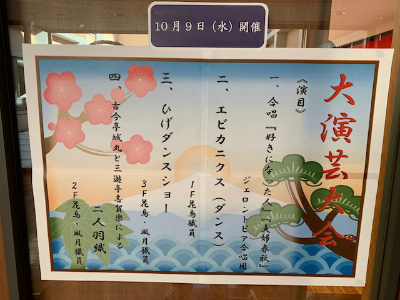 10月9日（水）開催
大演芸大会
《演目》
一、合唱『好きになった人』『夫婦春秋』
ジェロントピア合唱団
二、エビカニクス（ダンス）
1F花鳥職員
三、ひげダンスショー
3F花鳥・風月職員
四、古今亭城丸と三遊亭志賀樂による
二人羽織
2F花鳥・風月職員